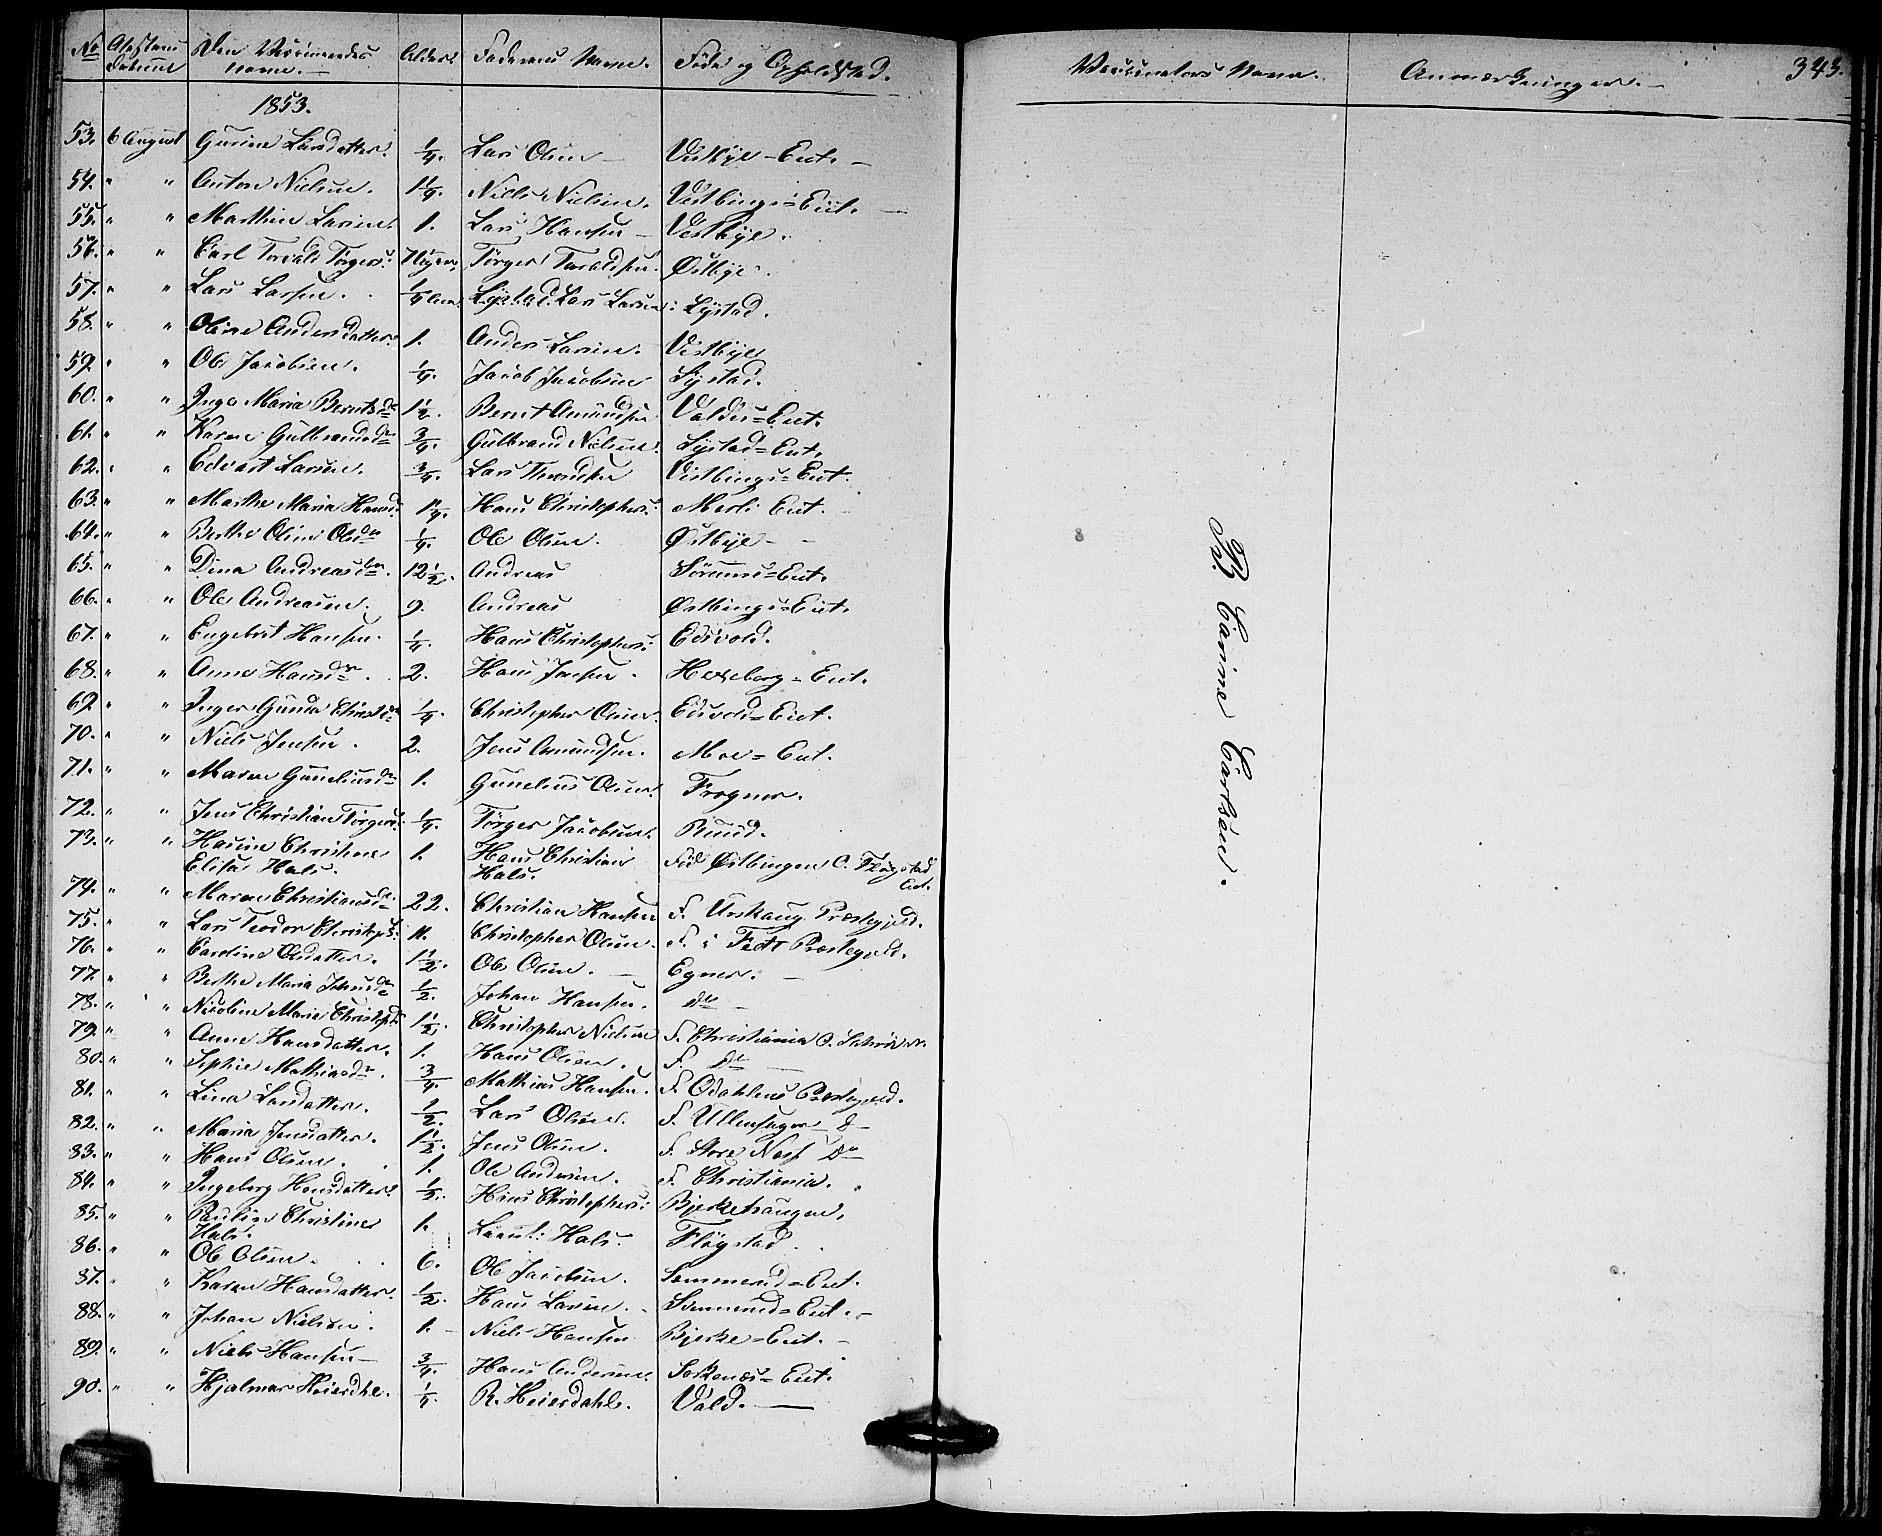 No Attestens Datum Den Vaccineredes Navn. Alder. Faderens Navn. Føde og Opholdsted. Vaccinateurs Navn. Anmærkninger. 343.
1853.
53. 6 August Gurine Larsdatter. 1/4. Lars Olsen Vestbye-Eiet.
54. " " Anton Nielsen. 1 1/4. Niels Nielsen. Vestbings=Eiet.
55. " " Marthin Larsen. 1. Lars Hansen Vestbye.
56. " " Carl Torvald Törgers: 7 Uger. Törger Taraldsen. Østbye.
57. " " Lars Larsen. 1/4 Lars Larsen: Lystad.
58. " " Oline Andersdatter. 1. Anders Larsen. Vestbye
59. " " Ole Jacobsen. 1/4. Jacob Jacobsen Lystad.
60. " " Inga Maria Berntsdr 1 1/2. Bernt Amundsen Valders=Eiet.
61. " " Karen Gulbrandsdr 3/4. Gulbrand Nielsen. Lystad=Eiet.
62. " " Edvart Larsen. 3/4. Lars Throndsen Vestbings=Eiet.
63. " " Marthe Maria Hansd: 1 1/4. Hans Christophers: Merli Eiet.
64. " " Berthe Oline Olsdr 1/4. Ole Olsen. Østbye
65. " " Dina Andreasdr. 12 1/2. Andreas Sörums=Eiet.
66. " " Ole Andreasen. 9. Andreas Østbings=Eiet.
67. " " Engebret Hansen. 1/4. Hans Christophers: Edsvold.
68. " " Anne Hansdr. 2. Hans Jensen. Hexeberg=Eiet.
69 " " Inger Gunda Christdr 1/4. Christopher Olsen. Edsvold=Eiet.
70. " " Niels Jensen. 2. Jens Amundsen. Moe=Eiet.
71. " " Maren Guneliusdr 1. Gunelius Olsen. Frogner.
72. " " Jens Christian Törgers: 1/4. Törger Jacobsen. Ruud.
73. " " Hansine Christine 1. Hans Christian Föd Østbingen O. Fløgstad
Elise Hals. Hals. Eiet.
74. " " Maren Christiansdr. 22. Christian Hansen F. Urskoug Præstegjeld.
75. " " Lars Teodor Christophs: 11. Christopher Olsen. F. i Fedt Præstegjeld.
76. " " Caroline Olsdatter. 1 1/2. Ole Olsen. Egner.
77. " " Berthe Maria Johansdr 1/2. Johan Hansen. do
78. " " Nicoline Marie Christophd: 1 1/2. Christopher Nielsen F. Christiania O.
79. " " Anne Hansdatter. 1. Hans Olsen. F. do
80. " " Sophie Mathiasdr. 3/4. Mathias Hansen. F. Odahlens Præstegjeld.
81. " " Lina Larsdatter. 1/2. Lars Olsen. F. Ullensager do
82. " " Maria Jensdatter. 1 1/2. Jens Olsen. F. Store Næs do
83. " " Hans Olsen. 1. Ole Andersen. F. Christiania.
84. " " Ingeborg Hansdatter. 1/2. Hans Christophers: Bjerkehaugen.
85. " " Paulin Christine 1. Lieut: Hals. Fløgstad
Hals.
86. " " Ole Olsen. 6. Ole Jacobsen. Sommerud=Eiet.
87. " " Karen Hansdatter. 1/2. Hans Larsen. Sommerud=Eiet.
88. " " Johan Nielsen. 1. Niels Hansen Bjerke=Eiet.
89. " " Niels Hansen 3/4. Hans Andersen. Sækenæs=Eiet.
90. " " Hjalmar Heierdhl. 1/4. R. Heierdahl. Vold.
Carine Carlsen.